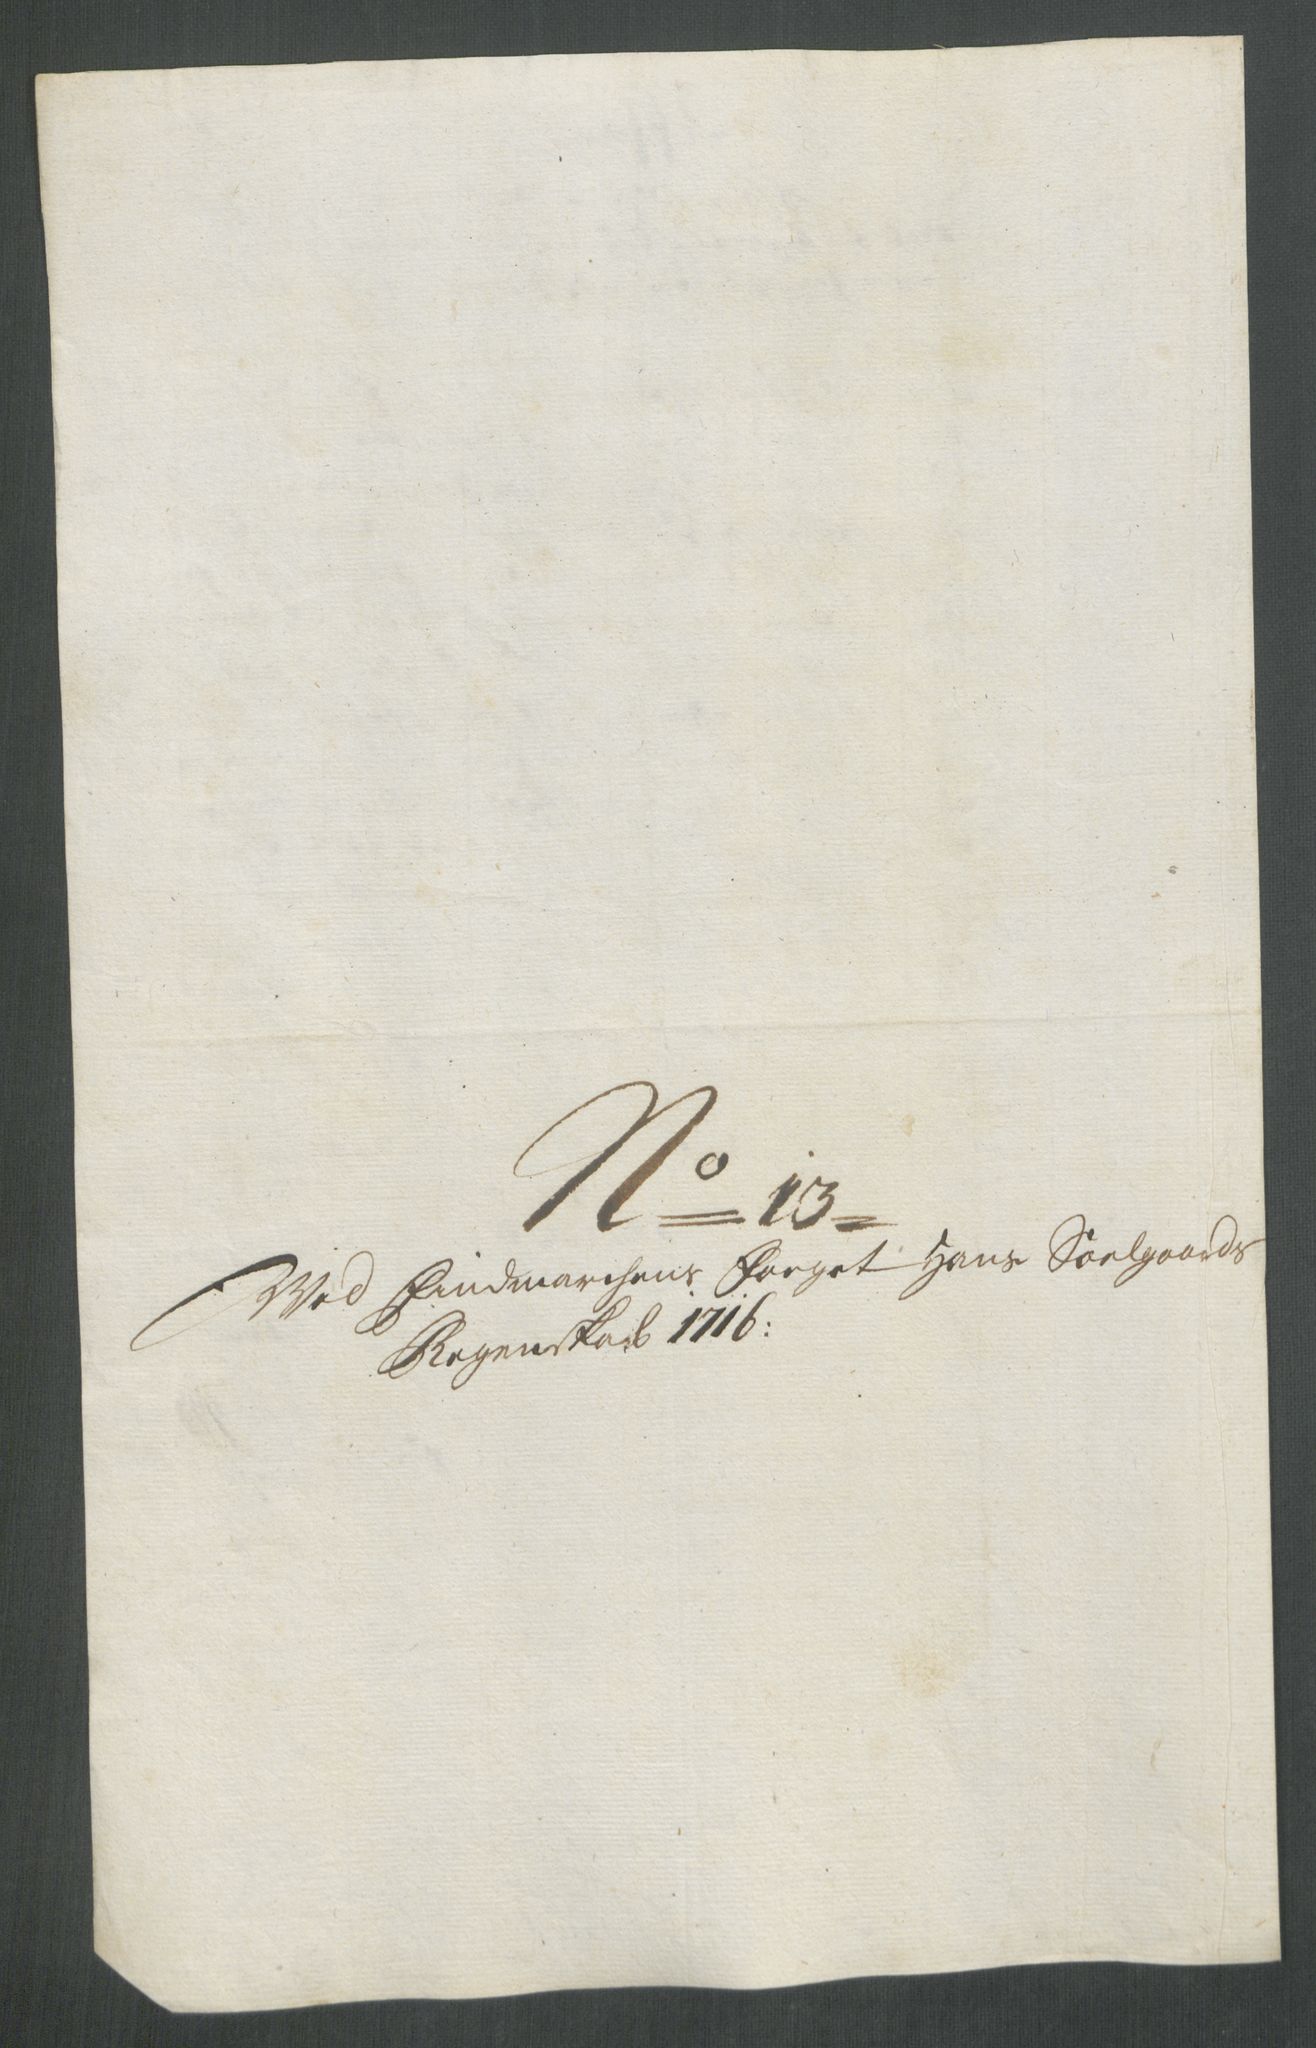 No 13
Ved Findmarchens Foeget Hans Soelgaards
Regenskab 1716: